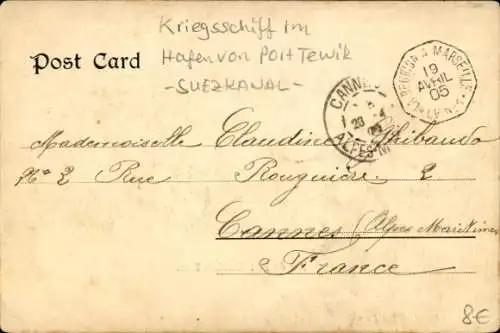 Kriegsschiff im
Hafen von Port Tewik
- SUEZKANAL -
Post Card
REUNION A MARSEILLE
19
AVRIL
05
CANNES
ALPES
Mademoiselle Claudine Thibaudo
2 Rue Rouguière 2
Cannes (Alpes Maritimes
France
8€